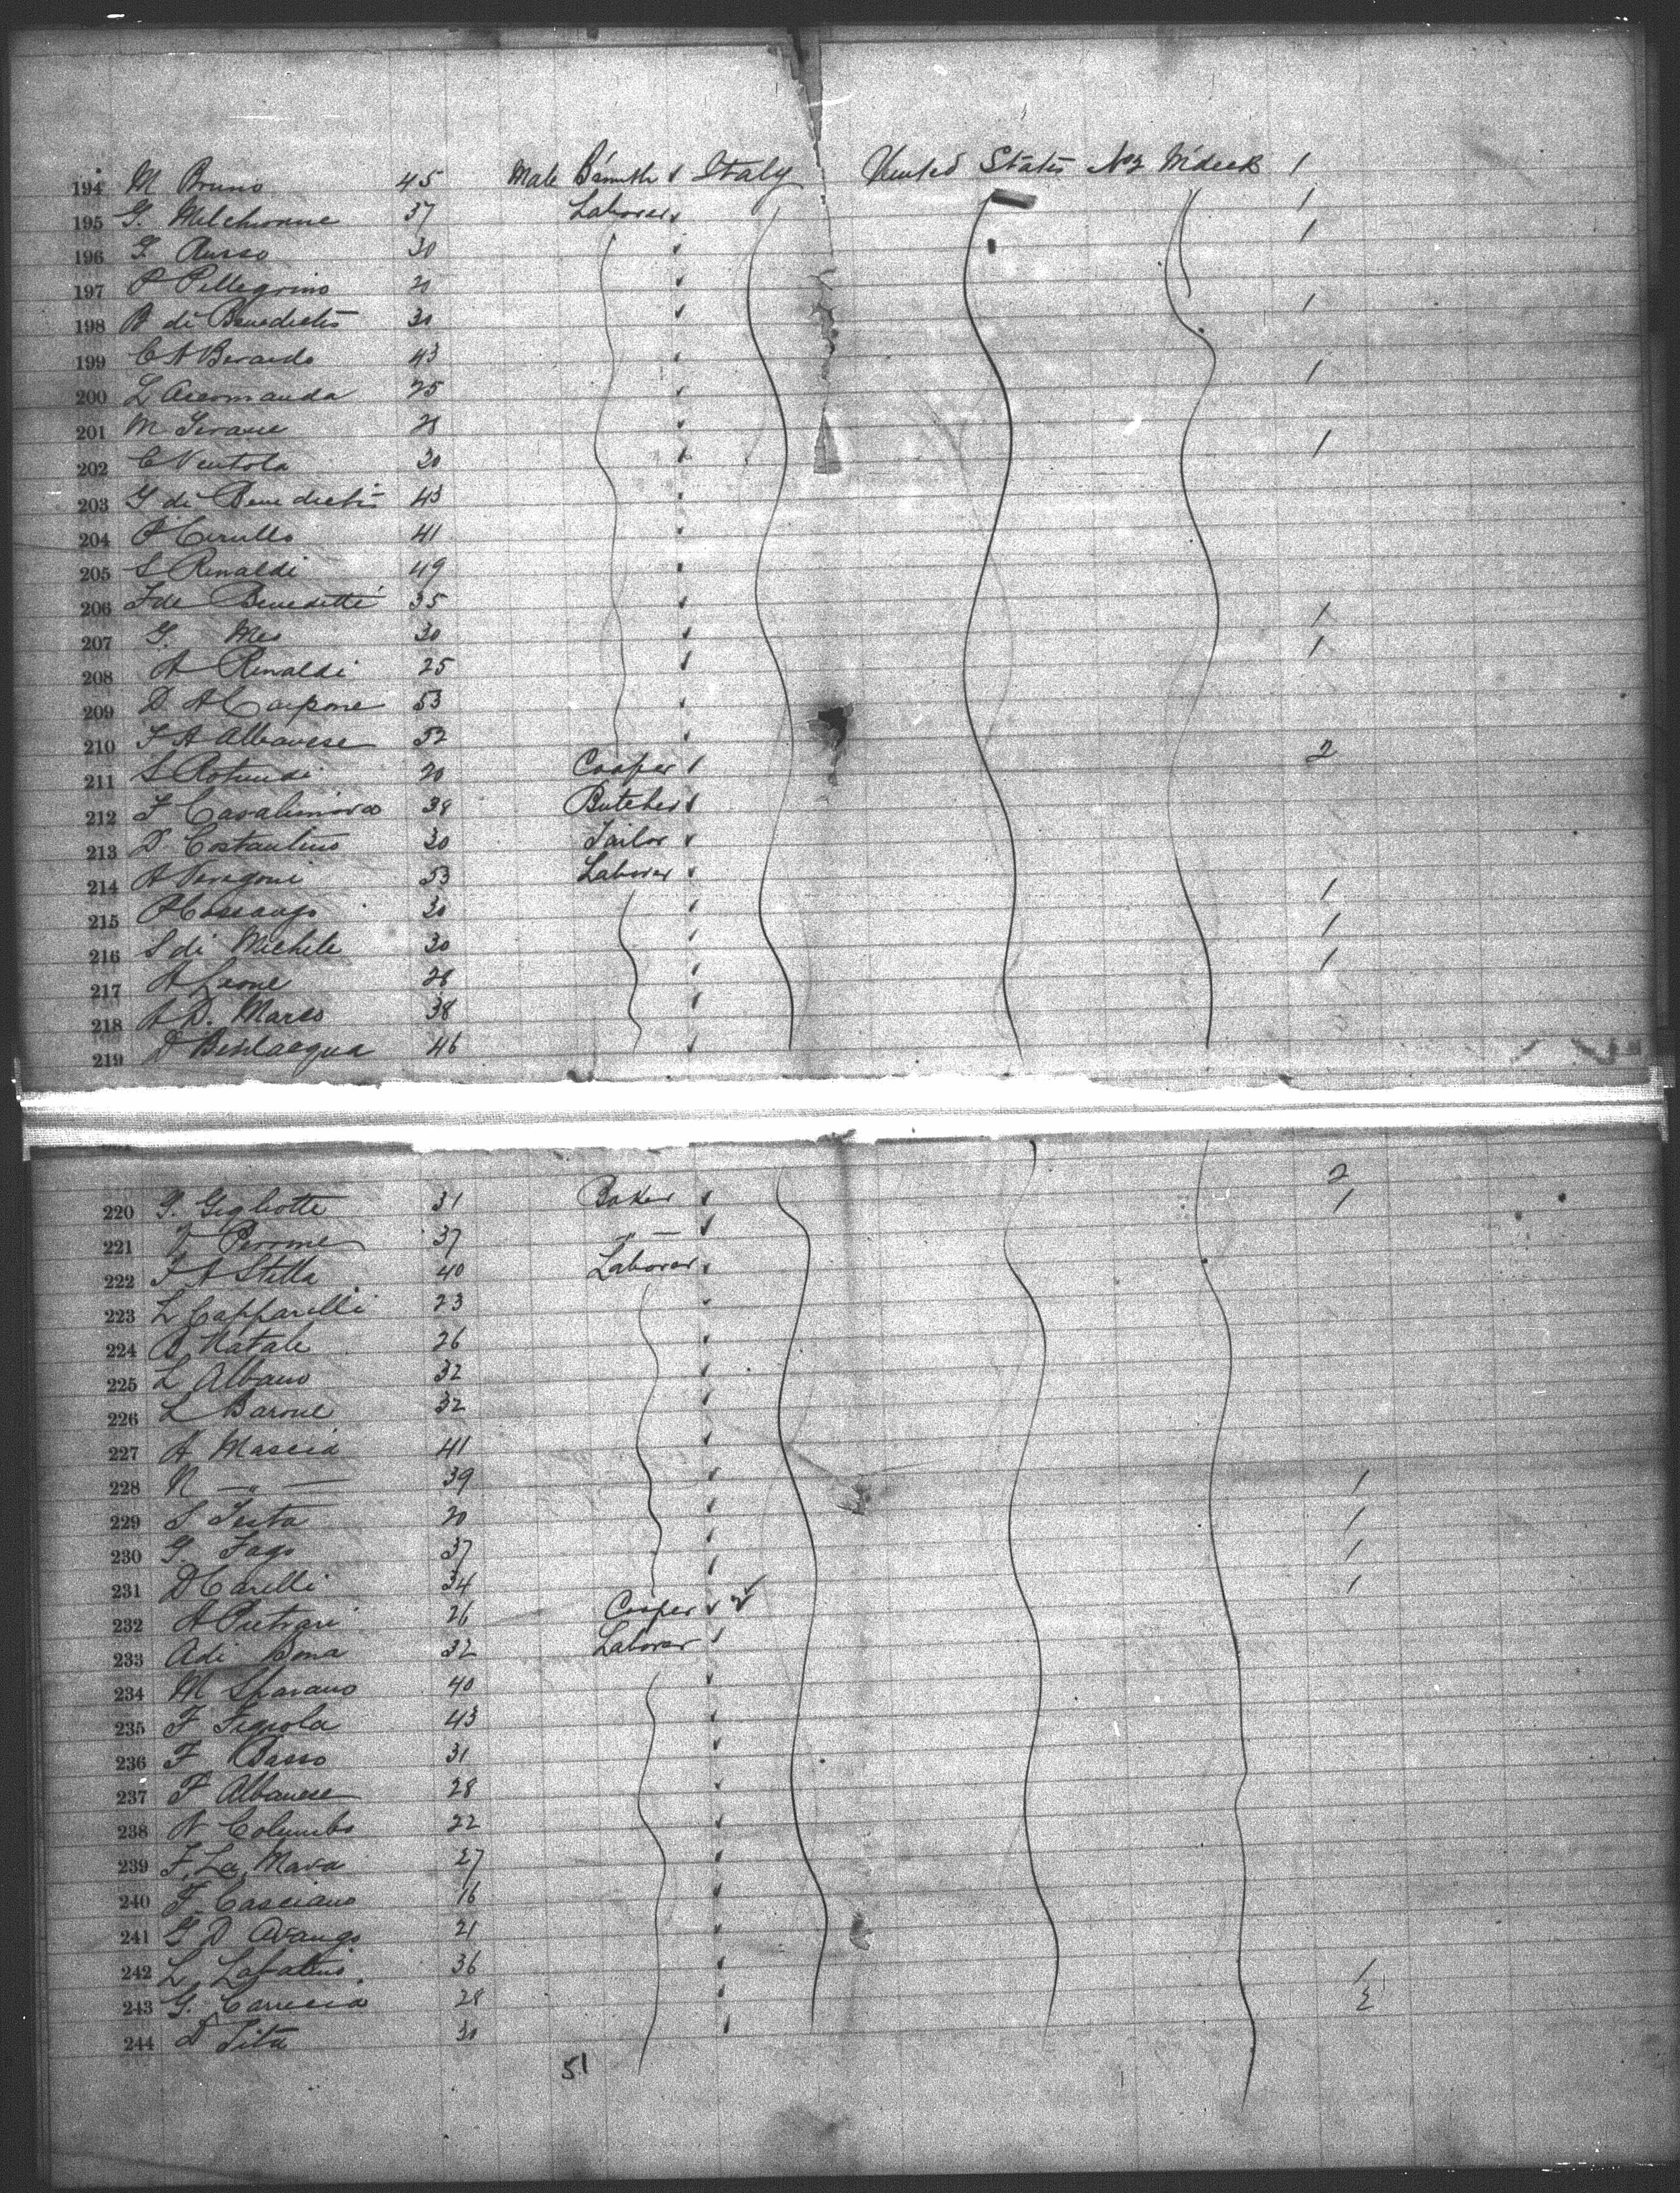 194 M Bruno 45 Male B.smith Italy United States No 2 Mdeck 1
195 G. Melchionne 37 Laborer 1
196 G Russo 30 1
197 P Pellegrino
198 B di Benedictis 30 1
199 C A Berardo 43
200 L Accomanda 25 1
201 M
202 C Ventola 30 1
203 G di Benedictis 43
204 P Cirullo 41
205 S Rinaldi 49
206 F de Benedetti 35 1
207 G. Meo 30 1
208 A Rinaldi 25
209 D A Carpone 53
210 F A Albanese 52 2
211 S Rotundi 20 Cooper
212 F 38 Butcher
213 D Costantino 30 Tailor
214 A 53 Laborer 1
215 P 30 1
216 S di Michele 30 1
217 A Leone 28
218 A D. Marco 38
219 D Bevilacqua 46
2
220 G. Gigliotti 31 Baker 1
221 V Perrone 37 — " —
222 F A Stella 40 Laborer
223 L Capparelli 23
224 B Natale 26
225 L Albano 32
226 L Barone 32
227 A Mascia 41
228 N — " — 39 1
229 S Testa 20 1
230 G. Fago 37 1
231 D Carelli 34 1
232 A Pietrari 26 Cooper
233 A di Bona 32 Laborer
234 M Sparano 40
235 F Fignola 43
236 F Basso 31
237 F Albanese 28
238 N Columbo 22
239 F. La Mava 27
240 F. Casciano 16
241 G D Avango 21
242 L. Labatino 36 1
243 G. Carrecia 28 2
244 D Tita 30
51